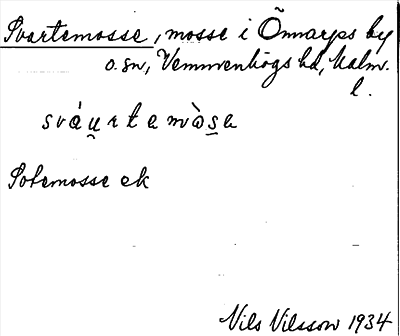 Svartemosse, mosse i Önnarps by
o. sn, Vemmenhögs hd, Malm.
l.
sváu̯rtemòs̲a
Sotemosse ek
Nils Nilsson 1934